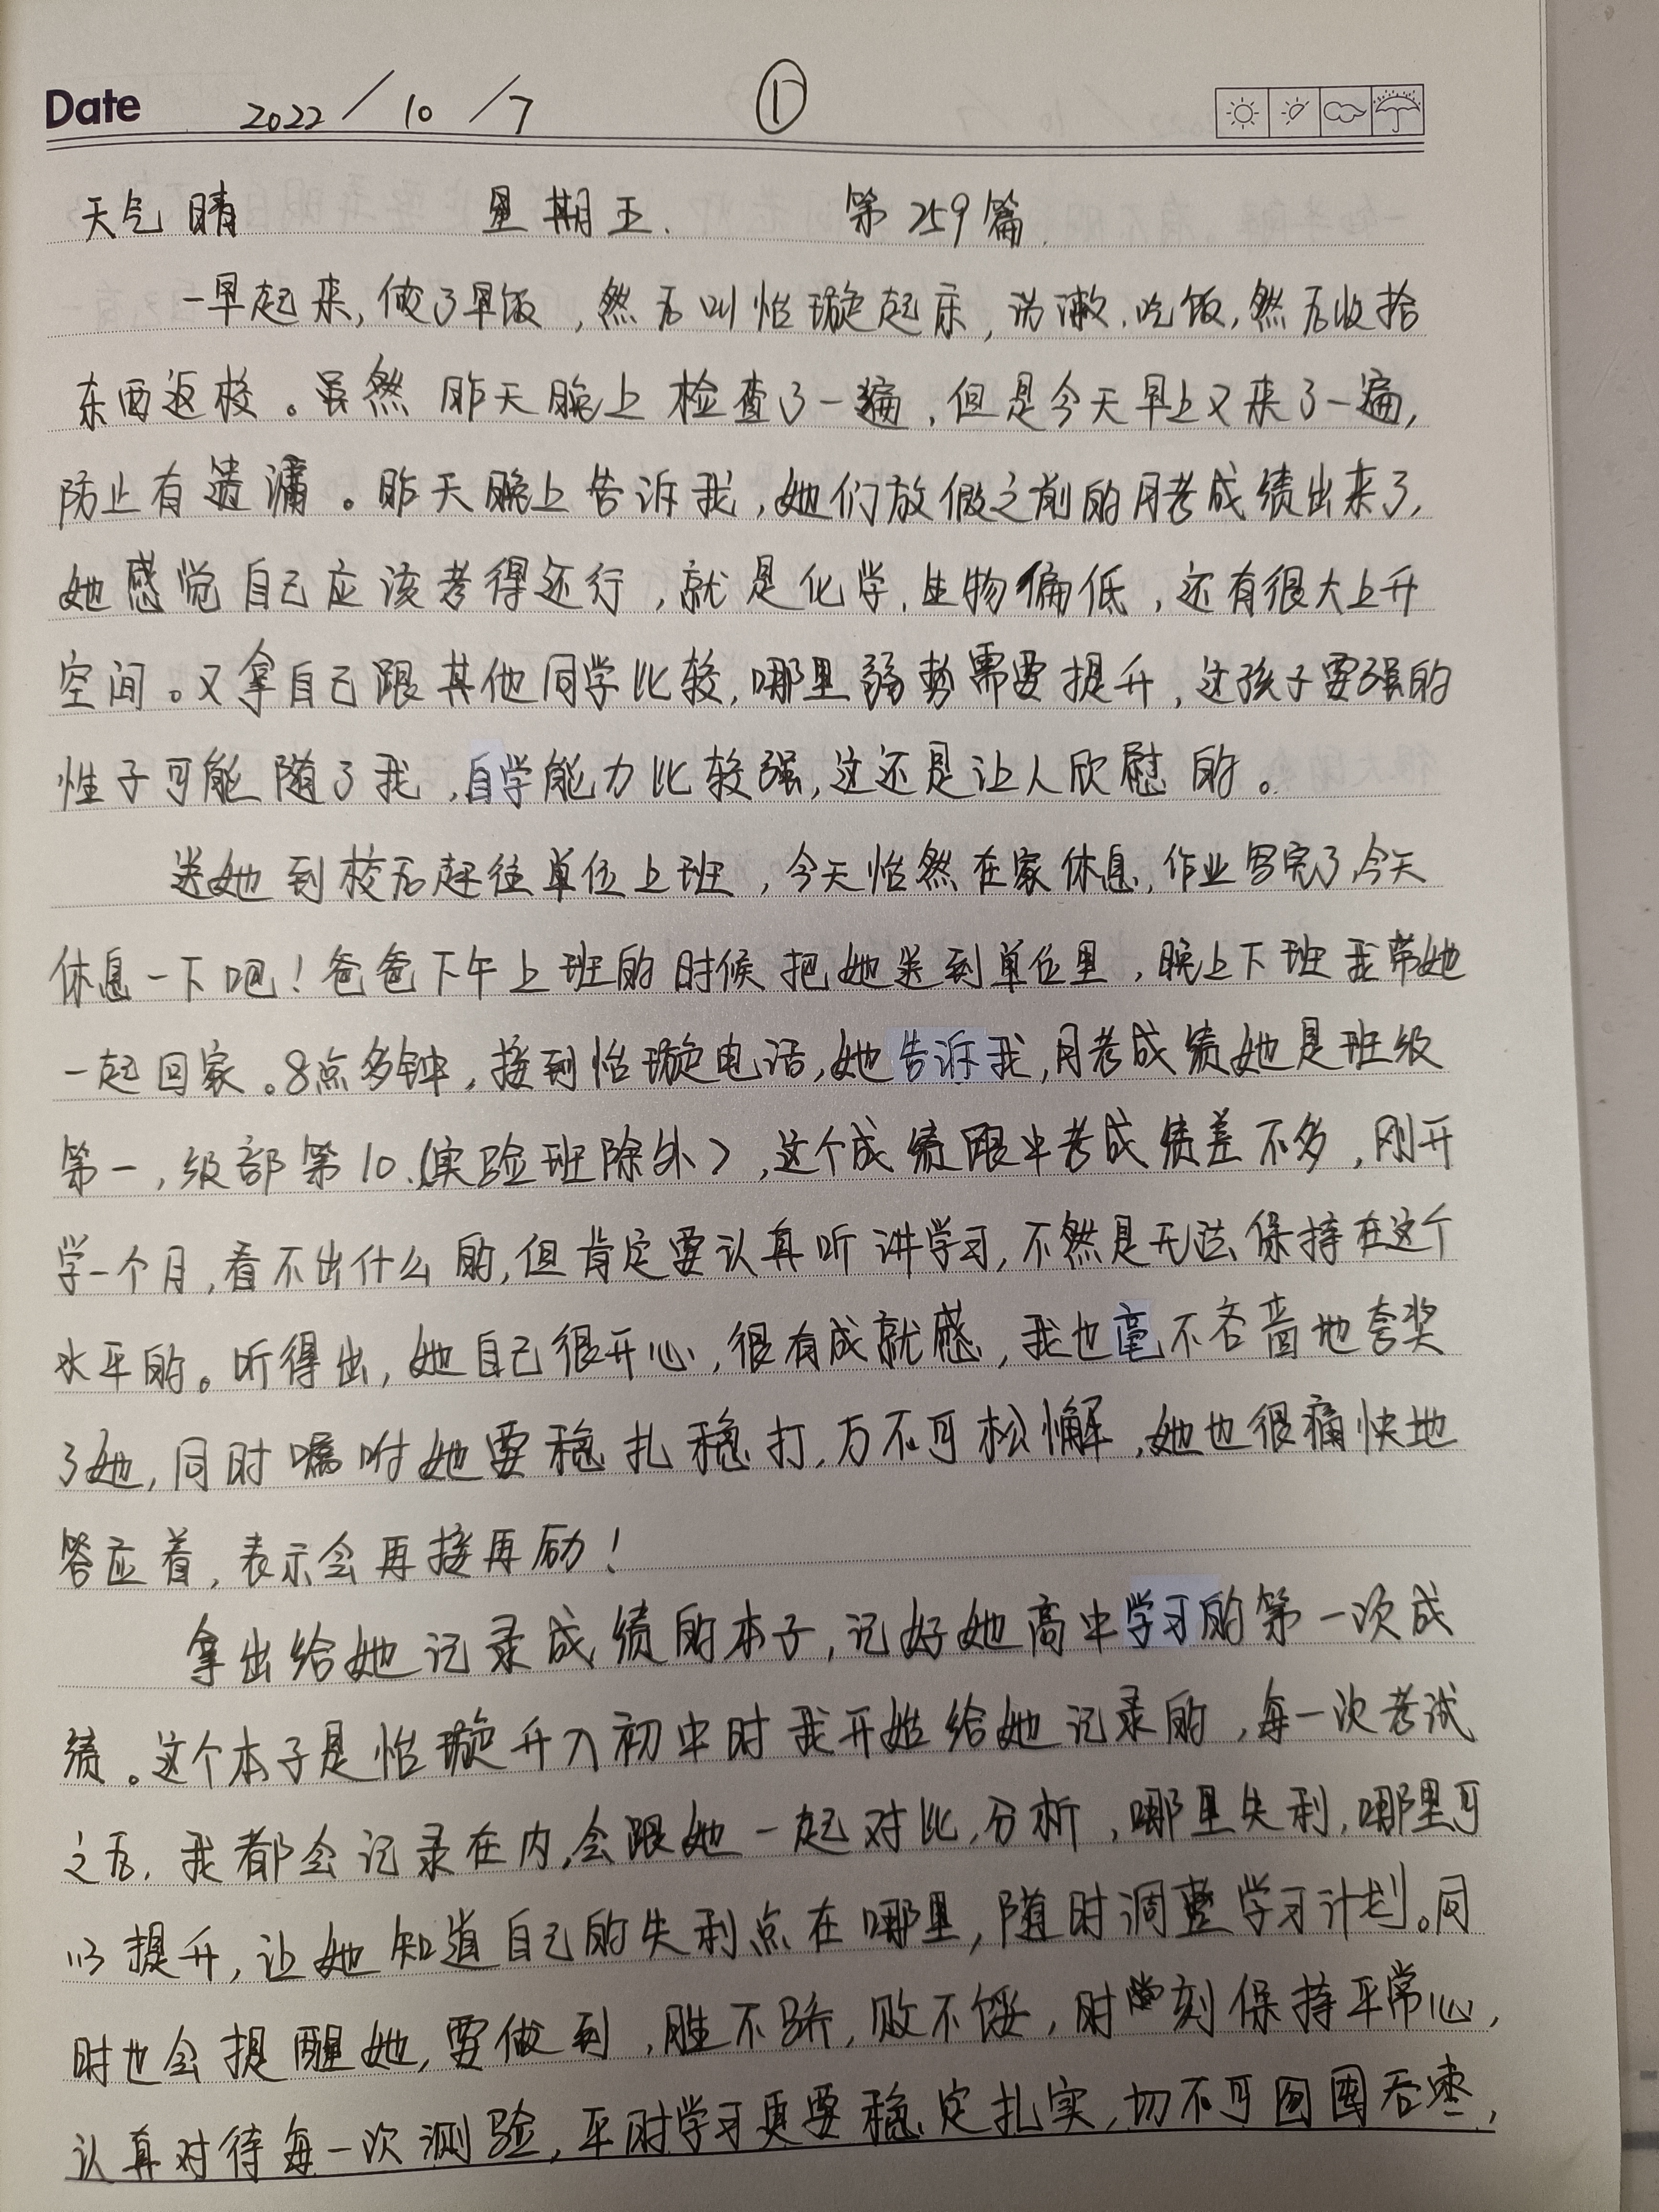 Date 2022/10/7 ①
天气晴 星期五. 第259篇.
一早起来,做了早饭,然后叫怡璇起床,洗漱.吃饭,然后收拾
东西返校。虽然昨天晚上检查了一遍,但是今天早上又来了一遍,
防止有遗漏。昨天晚上告诉我,她们放假之前的月考成绩出来了,
她感觉自己应该考得还行,就是化学.生物偏低,还有很大上升
空间。又拿自己跟其他同学比较,哪里弱势需要提升,这孩子要强的
性子可能随了我,自学能力比较强,这还是让人欣慰的。
送她到校后赶往单位上班,今天怡然在家休息,作业写完了今天
休息一下吧!爸爸下午上班的时候把她送到单位里,晚上下班我带她
一起回家。8点多钟,接到怡璇电话,她告诉我,月考成绩她是班级
第一,级部第10.(实验班除外),这个成绩跟中考成绩差不多,刚开
学一个月,看不出什么的,但肯定要认真听讲学习,不然是无法保持在这个
水平的。听得出,她自己很开心,很有成就感,我也毫不吝啬地夸奖
了她,同时嘱咐她要稳扎稳打,万不可松懈,她也很痛快地
答应着,表示会再接再励!
拿出给她记录成绩的本子,记好她高中学习的第一次成
绩。这个本子是怡璇升入初中时我开始给她记录的,每一次考试
之后,我都会记录在内,会跟她一起对比,分析,哪里失利,哪里可
以提升,让她知道自己的失利点在哪里,随时调整学习计划。同
时也会提醒她,要做到,胜不骄,败不馁,时刻保持平常心,
认真对待每一次测验,平时学习更要稳定扎实,切不可囫囵吞枣,